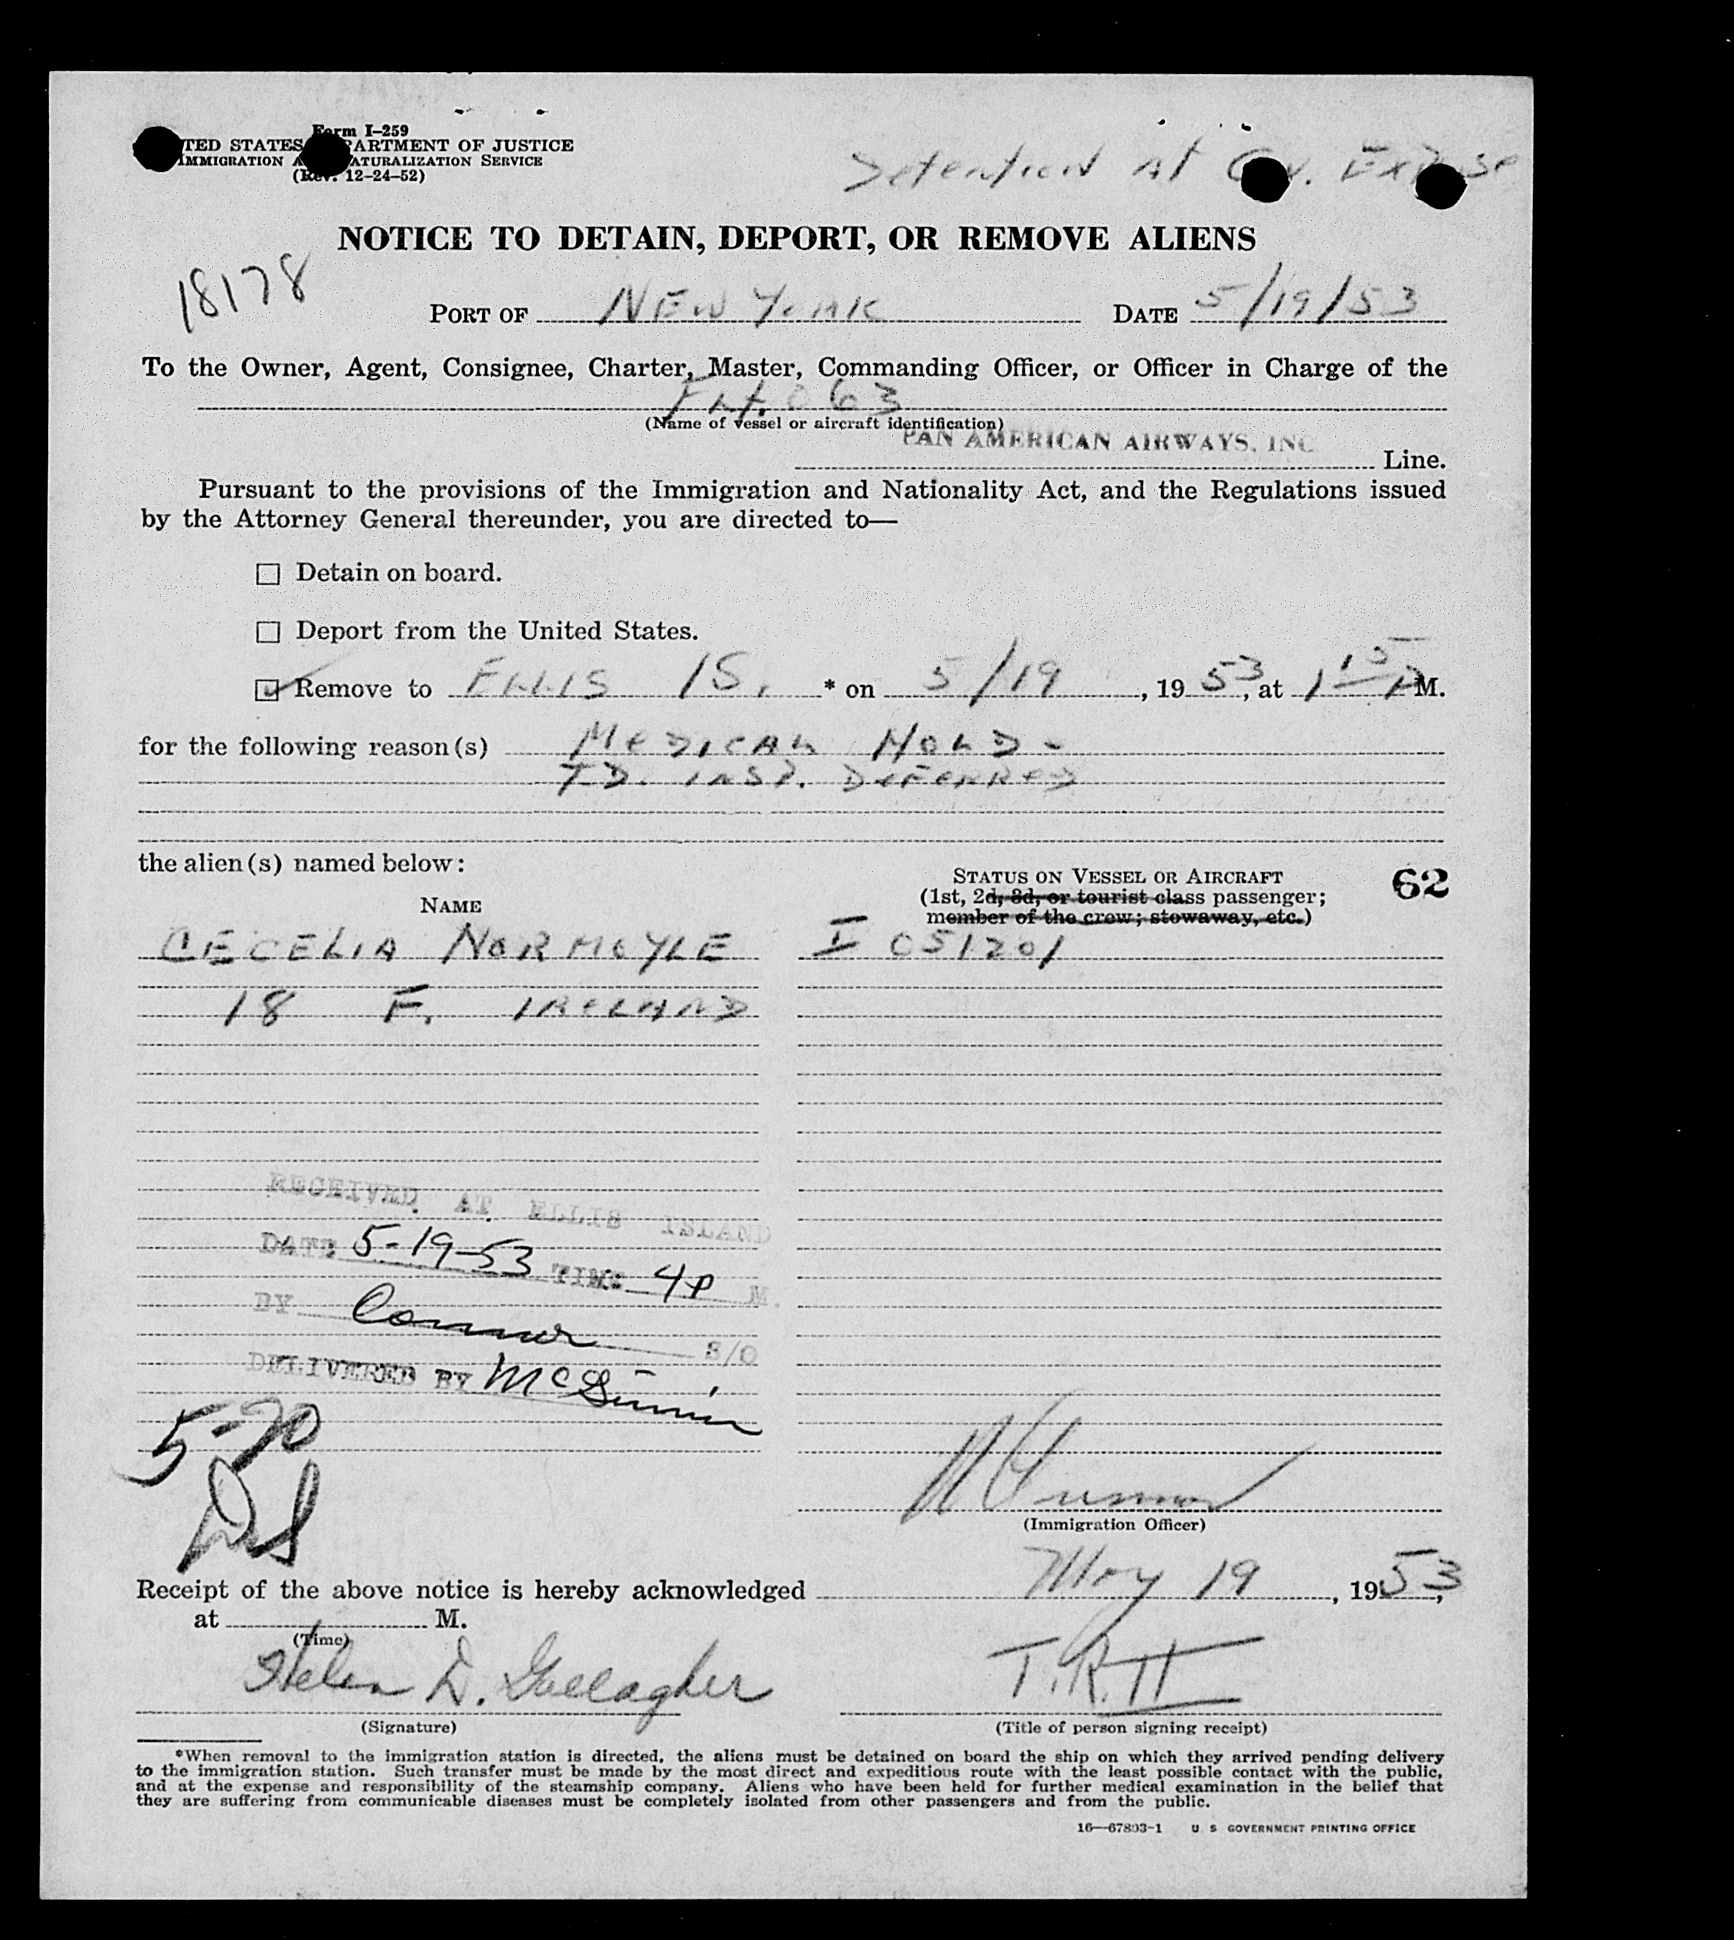 Form I-259
TED STATES PARTMENT OF JUSTICE
IMMIGRATION A ATURALIZATION SERVICE
(Rev. 12-24-52)
Detention At Gov. Expense
NOTICE TO DETAIN, DEPORT, OR REMOVE ALIENS
18178
PORT OF NEW YORK DATE 5/19/53
To the Owner, Agent, Consignee, Charter, Master, Commanding Officer, or Officer in Charge of the
063
(Name of vessel or aircraft identification)
PAN AMERICAN AIRWAYS, INC
Line.
Pursuant to the provisions of the Immigration and Nationality Act, and the Regulations issued
by the Attorney General thereunder, you are directed to—
Detain on board.
Deport from the United States.
Remove to ELLIS IS. * on 5/19, 1953, at 1 15 P M.
for the following reason(s) MEDICAL HOLD -
I.D. INSP. DEFERRED
the alien(s) named below:
STATUS ON VESSEL OR AIRCRAFT 62
(1st, 2d, 3d, or tourist class passenger;
NAME
member of the crew; stowaway, etc.)
CECELIA NORMOYLE I 051201
18 F. IRELAND
RECEIVED AT ELLIS ISLAND
DATE 5-19-53 TIME 4P M.
BY Connor S/O
DELIVERED BY
5-20
(Immigration Officer)
Receipt of the above notice is hereby acknowledged May 19, 1953,
at M.
(Time)
Helen D. Gallagher T.R.H
(Signature) (Title of person signing receipt)
*When removal to the immigration station is directed, the aliens must be detained on board the ship on which they arrived pending delivery
to the immigration station. Such transfer must be made by the most direct and expeditious route with the least possible contact with the public,
and at the expense and responsibility of the steamship company. Aliens who have been held for further medical examination in the belief that
they are suffering from communicable diseases must be completely isolated from other passengers and from the public.
16—67803-1 U S GOVERNMENT PRINTING OFFICE